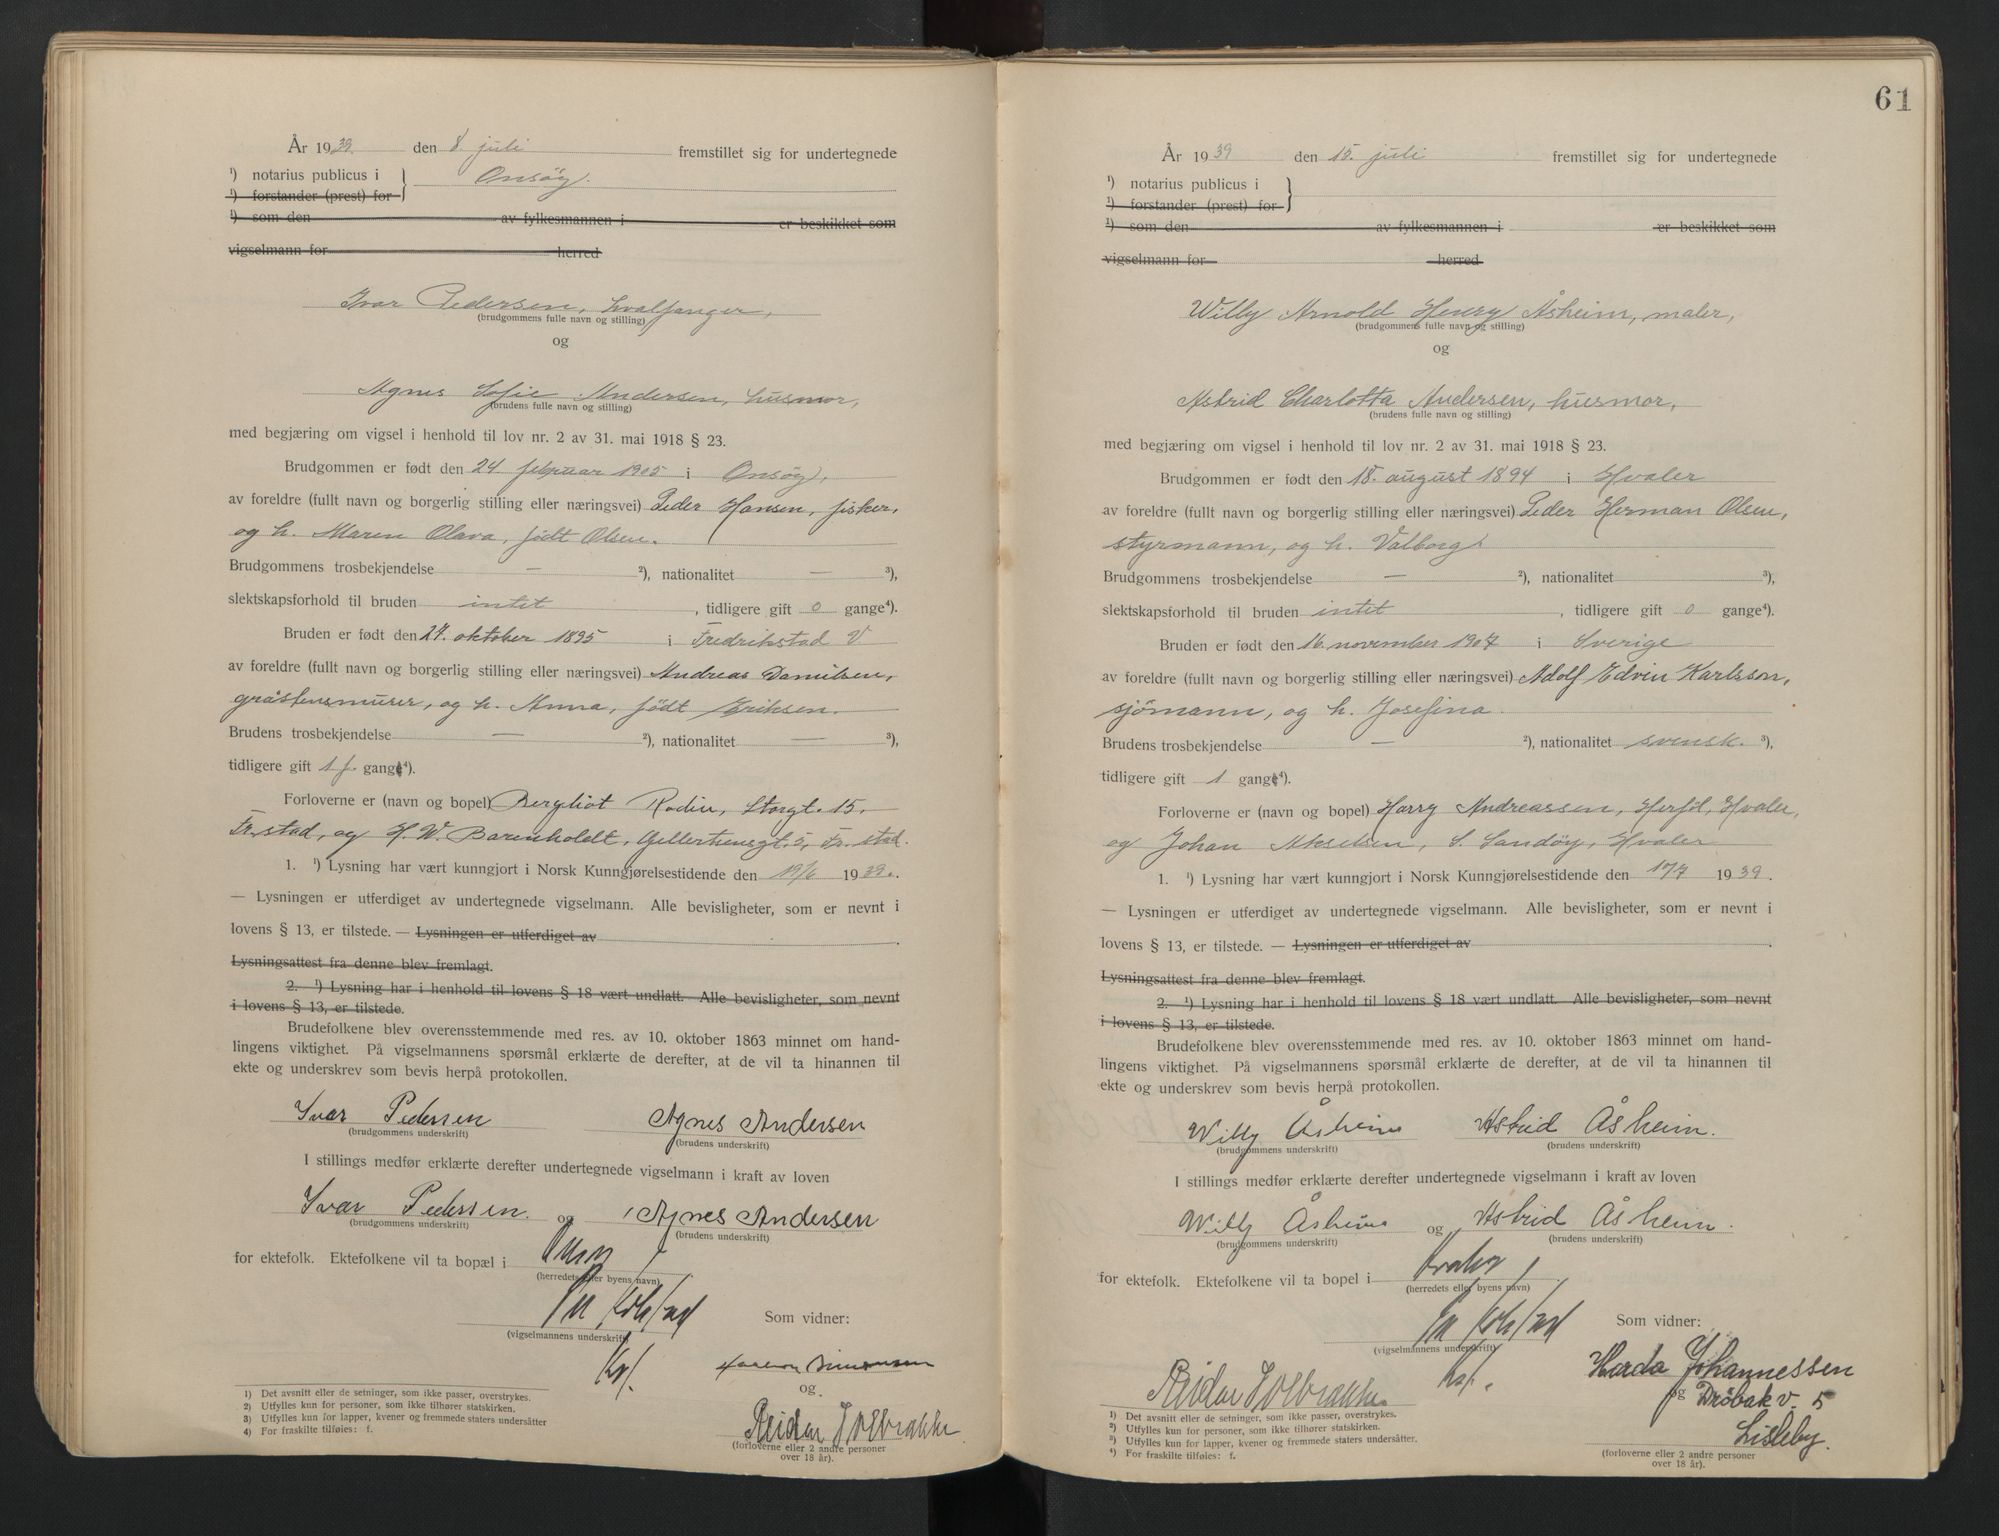 År 1939. den 8 juli fremstillet sig for undertegnede
¹) notarius publicus i } Onsøy.
¹) forstander (prest) for
¹) som den av fylkesmannen i er beskikket som
vigselmann for herred
Ivar Pedersen, hvalfanger,
(brudgommens fulle navn og stilling)
og
Agnes Sofie Andersen, husmor,
(brudens fulle navn og stilling)
med begjæring om vigsel i henhold til lov nr. 2 av 31. mai 1918 § 23.
Brudgommen er født den 24 februar 1905 i Onsøy,
av foreldre (fullt navn og borgerlig stilling eller næringsvei) Peder Hansen, fisker,
og h. Maren Olava, født Olsen.
Brudgommens trosbekjendelse — ²), nationalitet — ³),
slektskapsforhold til bruden intet , tidligere gift 0 gange⁴).
Bruden er født den 27. oktober 1895 i Fredrikstad V
av foreldre (fullt navn og borgerlig stilling eller næringsvei) Andreas Danielsen,
gråstensmurer, og h. Anna, født Eriksen.
Brudens trosbekjendelse — ²), nationalitet — ³),
tidligere gift 1 f gang⁴).
Forloverne er (navn og bopel) Bergliot Rodin, Storgt. 15.
Fr.stad, og H. W. Barenholdt, Gellertsensgt. 5, Fr. stad.
1. ¹) Lysning har vært kunngjort i Norsk Kunngjørelsestidende den 19/6 1939.
— Lysningen er utferdiget av undertegnede vigselmann. Alle bevisligheter, som er nevnt i
lovens § 13, er tilstede. — Lysningen er utferdiget av .
Lysningsattest fra denne blev fremlagt.
2. ¹) Lysning har i henhold til lovens § 18 vært undlatt. Alle bevisligheter, som nevnt
i lovens § 13, er tilstede.
Brudefolkene blev overensstemmende med res. av 10. oktober 1863 minnet om hand-
lingens viktighet. På vigselmannens spørsmål erklærte de derefter, at de vil ta hinannen til
ekte og underskrev som bevis herpå protokollen.
Ivar Pedersen Agnes Andersen
(brudgommens underskrift) (brudens underskrift)
I stillings medfør erklærte derefter undertegnede vigselmann i kraft av loven
Ivar Pedersen. og Agnes Andersen
(brudgommens underskrift) (brudens underskrift)
for ektefolk. Ektefolkene vil ta bopæl i
(herredets eller byens navn)
Som vidner:
(vigselmannens underskrift)
Kst.
og
Reidar
(forloverne eller 2 andre personer
over 18 år).
1) Det avsnitt eller de setninger, som ikke passer, overstrykes.
2) Utfylles kun for personer, som ikke tilhører statskirken.
3) Utfylles kun for lapper, kvener og fremmede staters undersåtter
4) For fraskilte tilføies: f.
61
År 1939 den 15. juli fremstillet sig for undertegnede
¹) notarius publicus i }
¹) forstander (prest) for
¹) som den av fylkesmannen i er beskikket som
vigselmann for herred
Willy Arnold Henry Åsheim, maler,
(brudgommens fulle navn og stilling)
og
Astrid Charlotta Andersen, husmor,
(brudens fulle navn og stilling)
med begjæring om vigsel i henhold til lov nr. 2 av 31. mai 1918 § 23.
Brudgommen er født den 18. august 1894 i Hvaler
av foreldre (fullt navn og borgerlig stilling eller næringsvei) Peder Herman Olsen,
styrmann, og h. Valborg
Brudgommens trosbekjendelse — ²), nationalitet ³),
slektskapsforhold til bruden intet , tidligere gift 0 gange⁴).
Bruden er født den 16. november 1907 i Sverige
av foreldre (fullt navn og borgerlig stilling eller næringsvei) Adolf Edvin Karlsson,
sjømann, og h. Josefina.
Brudens trosbekjendelse — ²), nationalitet svensk. ³),
tidligere gift 1 gang⁴).
Forloverne er (navn og bopel) Harry Andreassen, Herføl, Hvaler,
og Johan Akselsen, S. Sandøy, Hvaler
1. ¹) Lysning har vært kunngjort i Norsk Kunngjørelsestidende den 1939.
— Lysningen er utferdiget av undertegnede vigselmann. Alle bevisligheter, som er nevnt i
lovens § 13, er tilstede. — Lysningen er utferdiget av .
Lysningsattest fra denne blev fremlagt.
2. ¹) Lysning har i henhold til lovens § 18 vært undlatt. Alle bevisligheter, som nevnt
i lovens § 13, er tilstede.
Brudefolkene blev overensstemmende med res. av 10. oktober 1863 minnet om hand-
lingens viktighet. På vigselmannens spørsmål erklærte de derefter, at de vil ta hinannen til
ekte og underskrev som bevis herpå protokollen.
Willy Åsheim Astrid Åsheim.
(brudgommens underskrift) (brudens underskrift)
I stillings medfør erklærte derefter undertegnede vigselmann i kraft av loven
Willy Åsheim og Astrid Åsheim.
(brudgommens underskrift) (brudens underskrift)
for ektefolk. Ektefolkene vil ta bopel i Hvaler
(herredets eller byens navn)
Som vidner:
(vigselmannens underskrift)
Kst. Herda Johannessen
Reidar og Drøbak v. 5
Lisleby.
(forloverne eller 2 andre personer
over 18 år).
¹) Det avsnitt eller de setninger, som ikke passer, overstrykes.
²) Utfylles kun for personer, som ikke tilhører statskirken.
³) Utfylles kun for lapper, kvener og fremmede staters undersåtter.
⁴) For fraskilte tilføies: f.